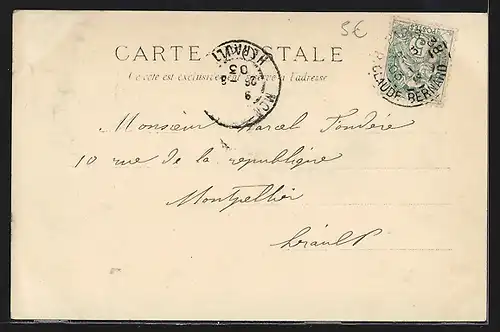 5€
CARTE POSTALE
Ce côté est exclusivement réservé à l'adresse
HÉRAULT
R. CLAUDE BERNARD
Monsieur Marcel Fondère
10 rue de la republique
Montpellier
Hérault